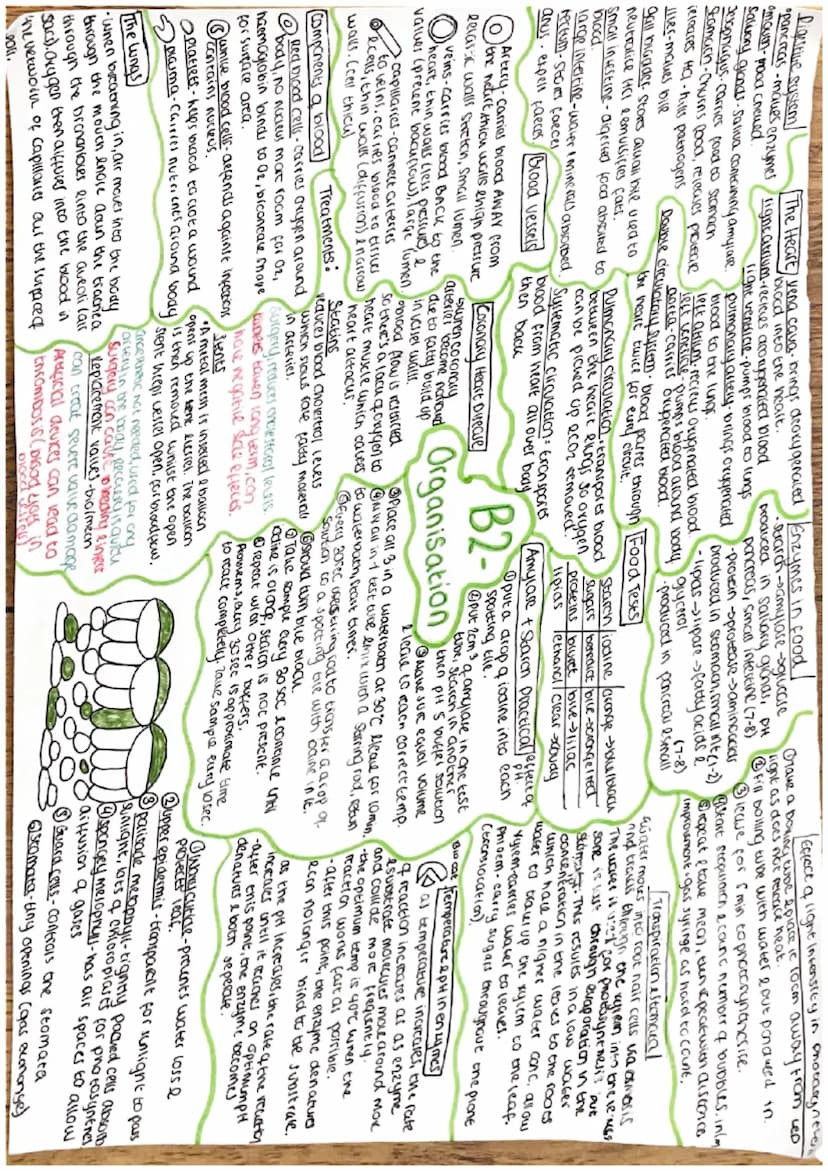 Digestive system
pancreas - makes enzymes
mouth - food chewed
salivary glands - saliva containing amylase
oesophagus - carries food to stomach
stomach - churns food, releases protease
releases HCl - kills pathogens
liver - makes bile
gall bladder - stores alkali bile used to
neutralise HCl & emulsifies fats.
small intestine - digested food absorbed to
blood.
large intestine - water & minerals absorbed
rectum - stores faeces
anus - expels faeces
Blood vessels
Artery - carries blood AWAY from
the heart, thick walls & high pressure
elastic walls stretch, small lumen.
veins - carries blood BACK to the
heart, thin walls (less pressure) &
valves (prevent backflow), large lumen
capillaries - connect arteries
to veins, carries blood to tissues
& cells, thin walls (diffusion) & narrow
walls (1 cell thick)
Components of blood
Red blood cells - carries oxygen around
body, no nucleus more room for O2,
haemoglobin binds to O2, biconcave more
for surface area.
white blood cells - defends against infection
contains nucleus.
platelets - helps blood to clot a wound
plasma - carries nutrients around body
The Lungs
- when breathing in, air moves into the body
through the mouth & nose down the trachea
through the bronchioles & into the alveoli (air
sacs). Oxygen then diffuses into the blood in
the network of capillaries over the surface
The Heart
vena cava - brings deoxygenated
blood into the heart.
right atrium - recieves deoxygenated blood
right ventricle - pumps blood to lungs
pulmonary artery - brings oxygenated
blood to the lungs.
left atrium - recieves oxygenated blood.
left ventricle - pumps blood around body
aorta - carries oxygenated blood.
Double circulatory system - blood passes through
the heart twice for every circuit.
Pulmonary circulation = transports blood
between the heart & lungs so oxygen
can be picked up & CO2 removed.
Systematic circulation = transports
blood from heart all over body
then back
Coronary Heart Disease
when coronary
arteries become narrowed
due to fatty build up
in vessel wall.
- blood flow is restricted
so there's a lack of oxygen to
heart muscle which causes
heart attacks.
Treatments:
Statins
reduces blood cholesterol levels
which slows fatty material
in arteries.
tablets taken long term, can
have negative side effects.
Stents
- A metal mesh is inserted & balloon
opens up the vessel. The balloon
is then removed whilst the open
stent keeps vessel open, for blood flow.
can treat severe valve damage
Replacement valves - bio/mech
Artificial devices can lead to
thrombosis (blood clots in
B2-
Organisation
Enzymes in food
- starch → amylase → glucose
produced in salivary glands,
pancreas, small intestine (7-8)
pH
- protein → protease → amino acids
produced in stomach, small int (1-2)
- lipids → lipase → fatty acids &
glycerol (7-8)
- produced in pancreas & small
Food tests
starch | iodine | orange → blue/black
sugars | benedict | blue → orange/red
proteins | biuret | blue → lilac
lipids | ethanol | clear → cloudy
Amylase + Starch Practical
effect of
pH
① put a drop of iodine into each
spotting tile.
② put 1cm3 of amylase in one test
tube, starch in another
then pH 5 buffer solution
③ make sure equal volume
& leave to reach correct temp.
③ Place all 3 in a waterbath at 30°C & leave for 10min
④ Mix all in 1 test tube & mix with a stirring rod, return
to waterbath, start timer.
⑤ Every 30sec use stirring rod to transfer a drop of
solution to a spotting tile with iodine in it.
⑥ should turn blue black
⑦ Take sample every 30 sec & continue until
iodine is orange, starch is not present.
⑧ repeat with other buffers.
Problems, every 30 sec is approximate time
to react completely, take sample every 10sec.
Effect of light intensity on photosynthesis
① have a boiling tube & place it 10cm away from LED
light as does not release heat.
② fill boiling tube with water & put pondweed in.
③ leave for 5min to photosynthesise.
④ start stopwatch & count number of bubbles in 1m
⑤ repeat & take mean, then repeat with distances
improvement - gas syringe as hard to count.
Transpiration & Stomata
- water moves into root hair cells via osmosis
and travels through the xylem into the leaves
The water is used for photosynthesis but
some is lost through evaporation in the
stomata. This results in a low water
concentration in the leaves to the roots
which have a higher water conc. allow
water to move up the xylem to the leaf.
xylem - carries water to leaves.
phloem - carry sugars throughout the plant
(translocation)
Temperature & pH in enzymes
as temperature increases, the rate
of reaction increases as as enzyme
& substrate molecules move around more
and collide more frequently.
the optimum temp is 40°C when the
reaction works fast as possible.
- after this point, the enzyme denatures
& can no longer bind to be substrate.
as the pH increases the rate of the reaction
increases until it reaches an optimum pH
- after this point, the enzyme becomes
denatured & both seperate.
① waxy cuticle - prevents water loss &
protects leaf.
② upper epidermis - transparent for sunlight to pass
③ palisade mesophyll - tightly packed cells absorb
sunlight, lots of chloroplasts for photosynthesis
④ spongey mesophyll - has air spaces to allow
diffusion of gases
⑤ Guard cells - controls the stomata
⑥ stomata - tiny opening (gas exchange)